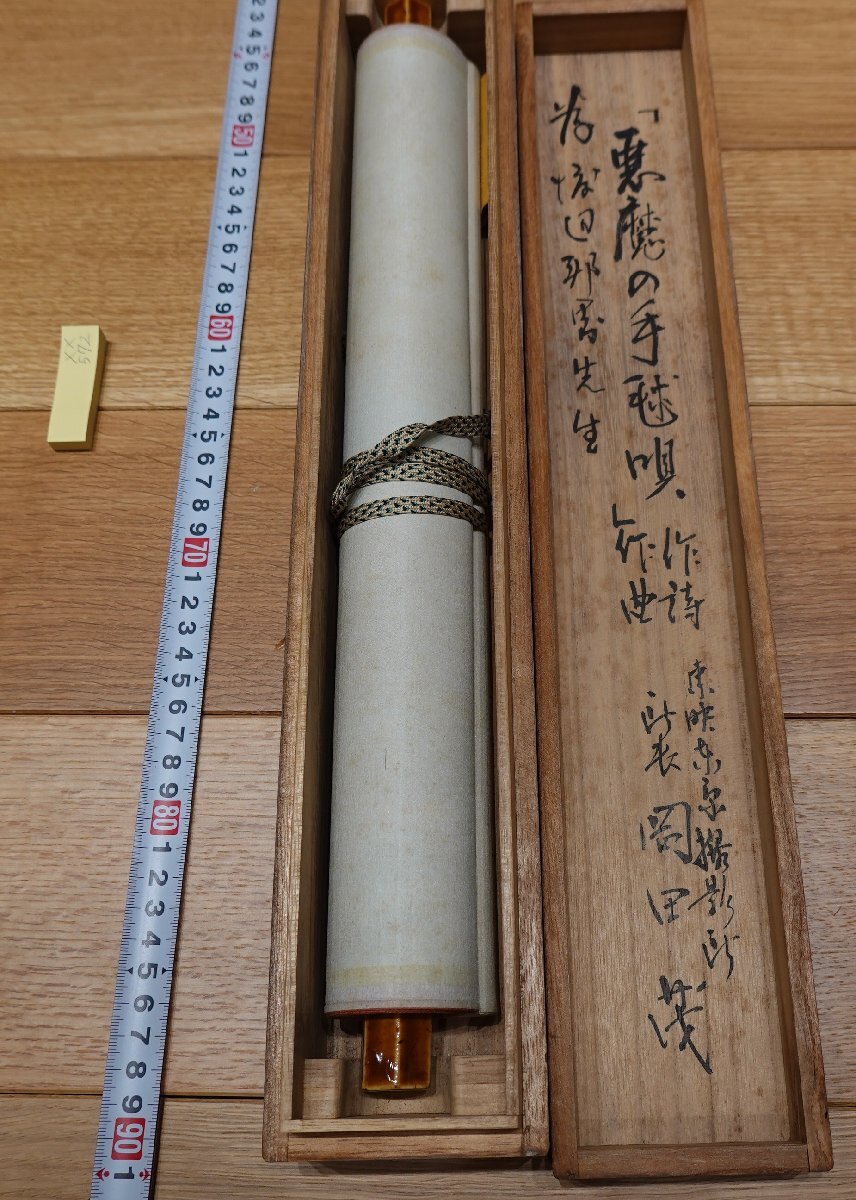 「悪魔の手毬唄、作詩
作曲
為 渡辺邦男先生
東映東京撮影所
所長 岡田 茂
2 3 4 5 6 7 8 9 50 1 2 3 4 5 6 7 8 9 60 1 2 3 4 5 6 7 8 9 70 1 2 3 4 5 6 7 8 9 80 1 2 3 4 5 6 7 8 9 90 1